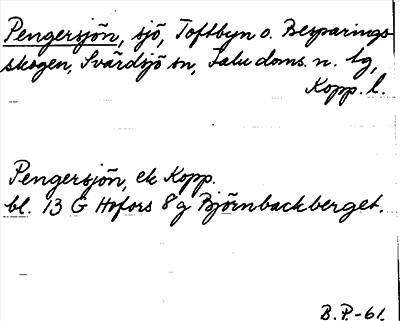 Pengersjön, sjö, Toftbyn o. Besparings-
skogen, Svärdsjö sn, Falu doms. n. tg,
Kopp. l.
Pengersjön, ek Kopp.
bl. 13 G Hofors 8 g Björnbackberget.
B.P.-61.